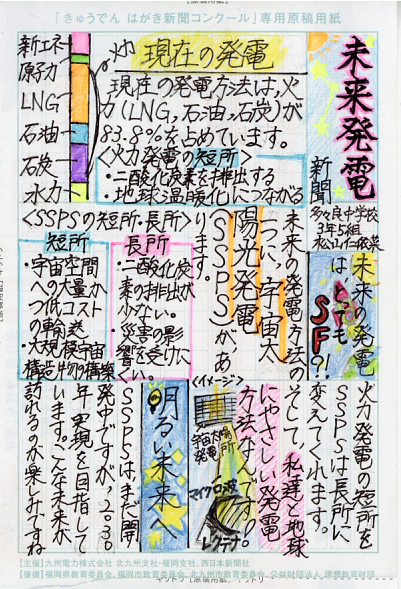 「きゅうでん はがき新聞コンクール」専用原稿用紙
未来発電
新聞
多々良中学校
3年5組
現在の発電
現在の発電方法は、火
力(LNG、石油、石炭)が
83.8%を占めています。
<火力発電の短所>
・二酸化炭素を排出する
地球温暖化につながる
新エネ
原子力
LNG
石油
石炭
水力
火力
未来の発電
は、とっても
SF?!
未来の発電方法の
一つに、宇宙太
陽光発電
(SSPS)があ
ります。
<SSPSの短所・長所>
長所
・二酸化炭
素の排出が
少ない。
・災害の影
響を受けに
くい。
短所
・宇宙空間
への大量か
つ低コスト
の輸送
・大規模宇宙
構造物の構築
火力発電の短所を
SSPSは長所に
変えてくれます。
そして、私達と地球
にやさしい発電
方法なんです!
<イメージ>
宇宙太陽光
発電所
マイクロ波
レクテナ
明るい未来へ
SSPSは、まだ開
発中ですが、2030
年実現を目指して
います。こんな未来が
訪れるのが楽しみですね
【主催】九州電力株式会社 北九州支社・福岡支社、西日本新聞社
【後援】福岡県教育委員会、福岡市教育委員会、北九州市教育委員会、公益財団法人 理想教育財団